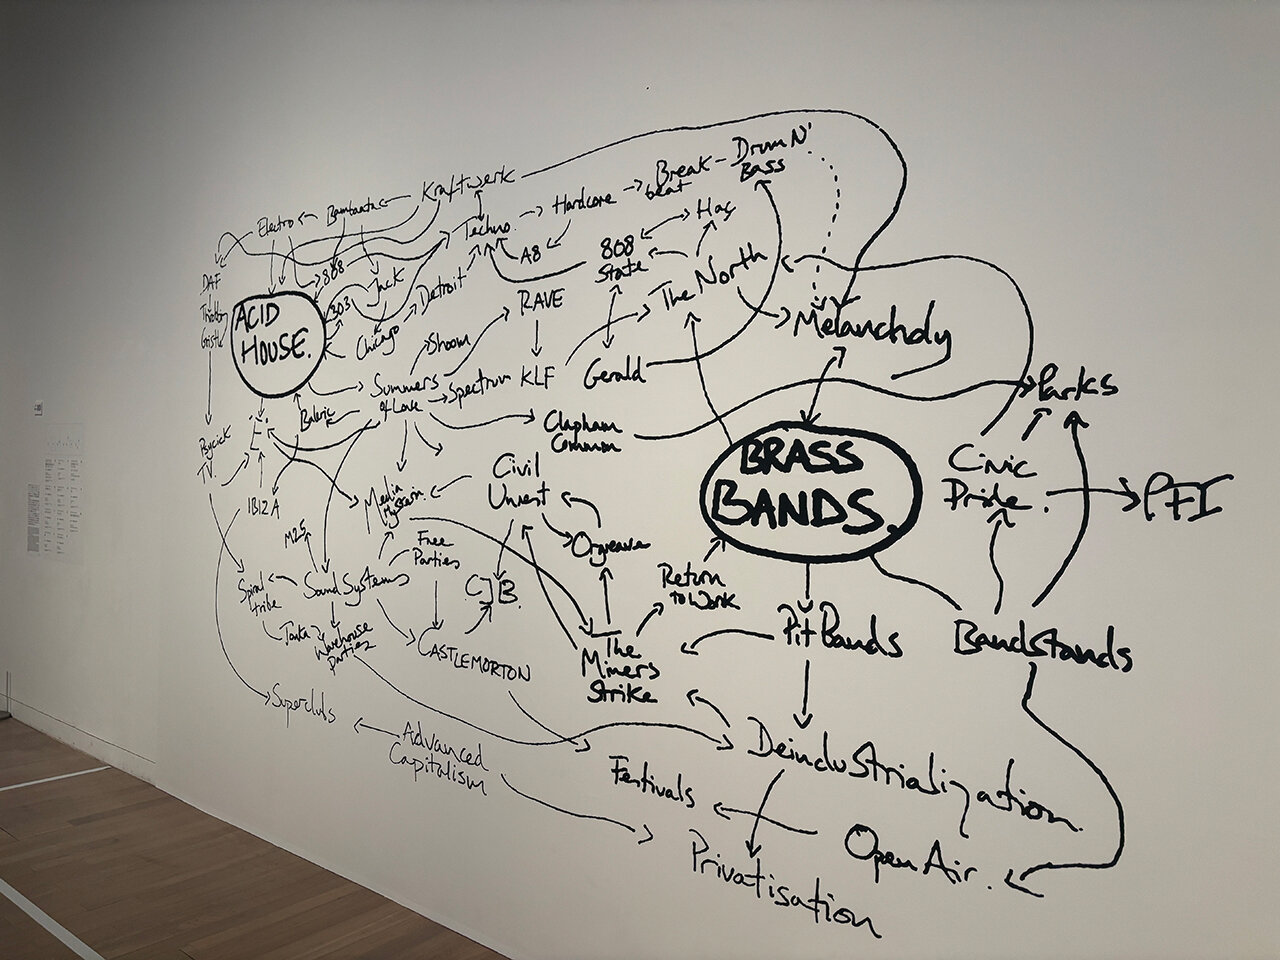 Drum N'
Bass
Break-
beat
Kraftwerk
Hardcore
Bambaataa
Electro
Techno.
Hac
A8
808
State
The North
DAF
808
Jack
Detroit
303
RAVE
Throbbing
Gristle
ACID
HOUSE.
Chicago
Shoom
Melancholy
Summers
of Love
Spectrum
KLF
Gerald
Parks
Balearic
E.
Clapham
Common
BRASS
BANDS.
Civic
Pride.
PFI
Psychick
TV.
Civil
Unrest
Media
Hysteria.
IBIZA
M25
Free
Parties
Orgreave
Return
to Work
Spiral
tribe
Sound Systems
CJB.
Tonka
Warehouse
parties
CASTLEMORTON
The
Miners
Strike
Pit Bands
Bandstands
Superclubs
Advanced
Capitalism
Deindustrialization
Festivals
Open Air.
Privatisation